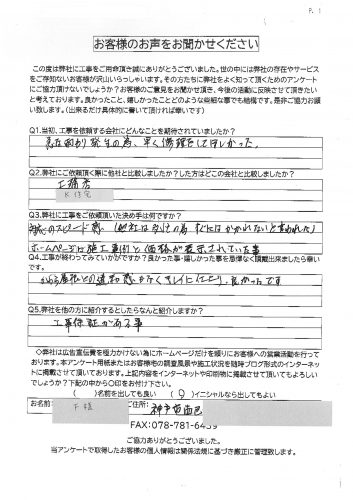 P. 1
お客様のお声をお聞かせください
この度は弊社に工事をご用命頂き誠にありがとうございました。世の中には弊社の存在やサービス
をご存知ないお客様が沢山いらっしゃいます。その方たちに弊社をよく知って頂くためのアンケート
にご協力頂けないでしょうか?お客様のご意見をお聞かせ頂き、今後の活動に反映させて頂きたい
と考えております。良かったこと、嬉しかったことどのような些細な事でも結構です。是非ご協力お願
い致します。(出来るだけ具体的に書いて頂ければ幸いです)
Q1.当初、工事を依頼する会社にどんなことを期待されていましたか?
の為、早く修理をしてほしかった。
Q2.弊社にご依頼頂く際に他社と比較しましたか?した方はどこの会社と比較しました?
工務店
K 住宅
Q3.弊社に工事をご依頼頂いた決め手は何ですか?
対応のスピード感(他社は の為 と言われた)
ホームページに施工事例と価格が表示されていた事
Q4.工事が終わってみていかがですか?良かった事・嬉しかった事を忌憚なく頂戴出来ましたら幸い
です。
なくキレイに仕上がり、良かったです
Q5.弊社を他の方に紹介するとしたらなんと紹介しますか?
工事保証がある事
◇弊社は広告宣伝費を極力かけない為にホームページだけを頼りにお客様への営業活動を行って
おります。本アンケート用紙またはお客様宅の調査風景や施工状況を随時ブログ形式のインターネッ
トに掲載させて頂いております。上記内容をインターネットや印刷物に掲載させて頂いてもよろしい
でしょうか?下記の中から○印をお付け下さい。
( )名前を出しても良い (○)イニシャルなら出してもよい
お名前: F 様 ご住所: 神戸市西区
FAX:078-781-6439
ご協力ありがとうございました。
当アンケートで取得したお客様の個人情報は関係法規に基づき厳正に管理致します。